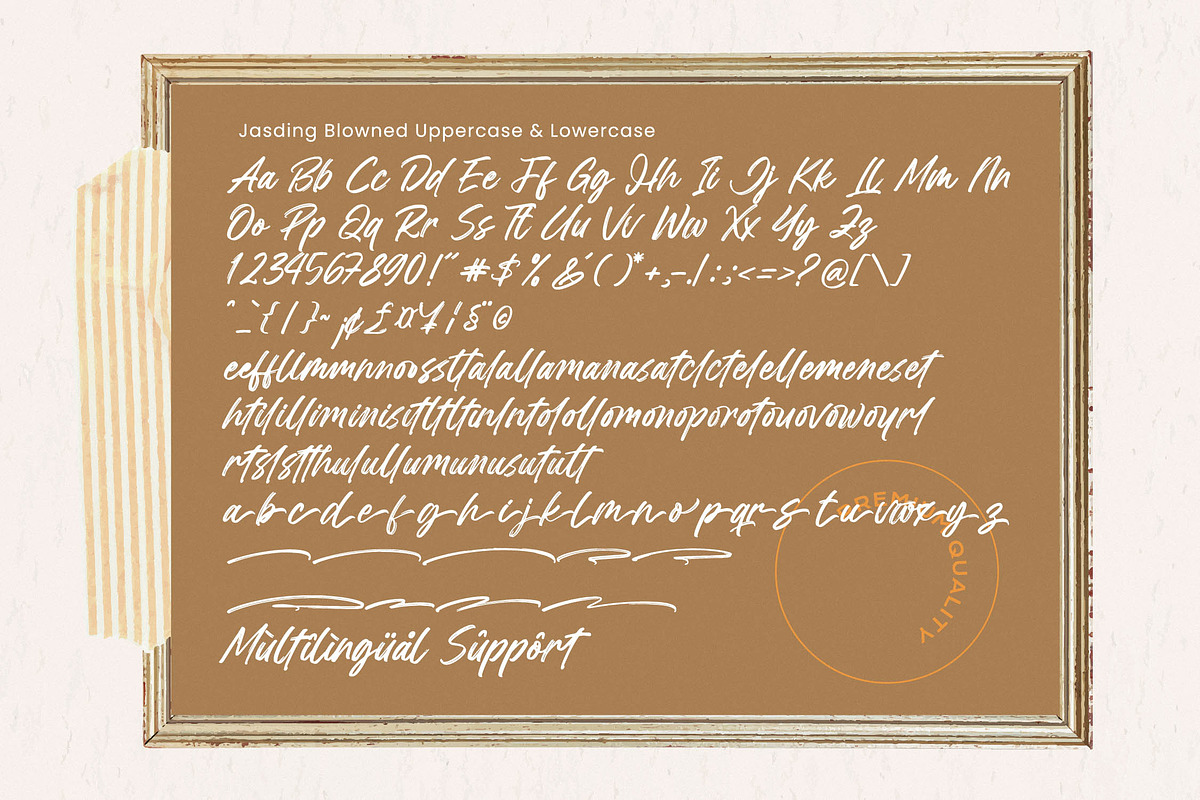 Jasding Blowned Uppercase & Lowercase
Aa Bb Cc Dd Ee Ff Gg Hh Ii Jj Kk Ll Mm Nn
Oo Pp Qq Rr Ss Tt Uu Vv Ww Xx Yy Zz
1234567890!"#$%&'()*+,-./:;<=>?@[\]
^_`{|}~¡¢£¤¥¦§¨©
eeffllmmnnoossttalallamanasatclctelellemeneset
htililliminisitltltinlntolollomonoporotouovowoyrl
rtslstthulullumunusututt
a b c d e f g h i j k l m n o p q r s t u v w x y z
Mùltîlìngüål Sûppôrt
PREMIUM QUALITY